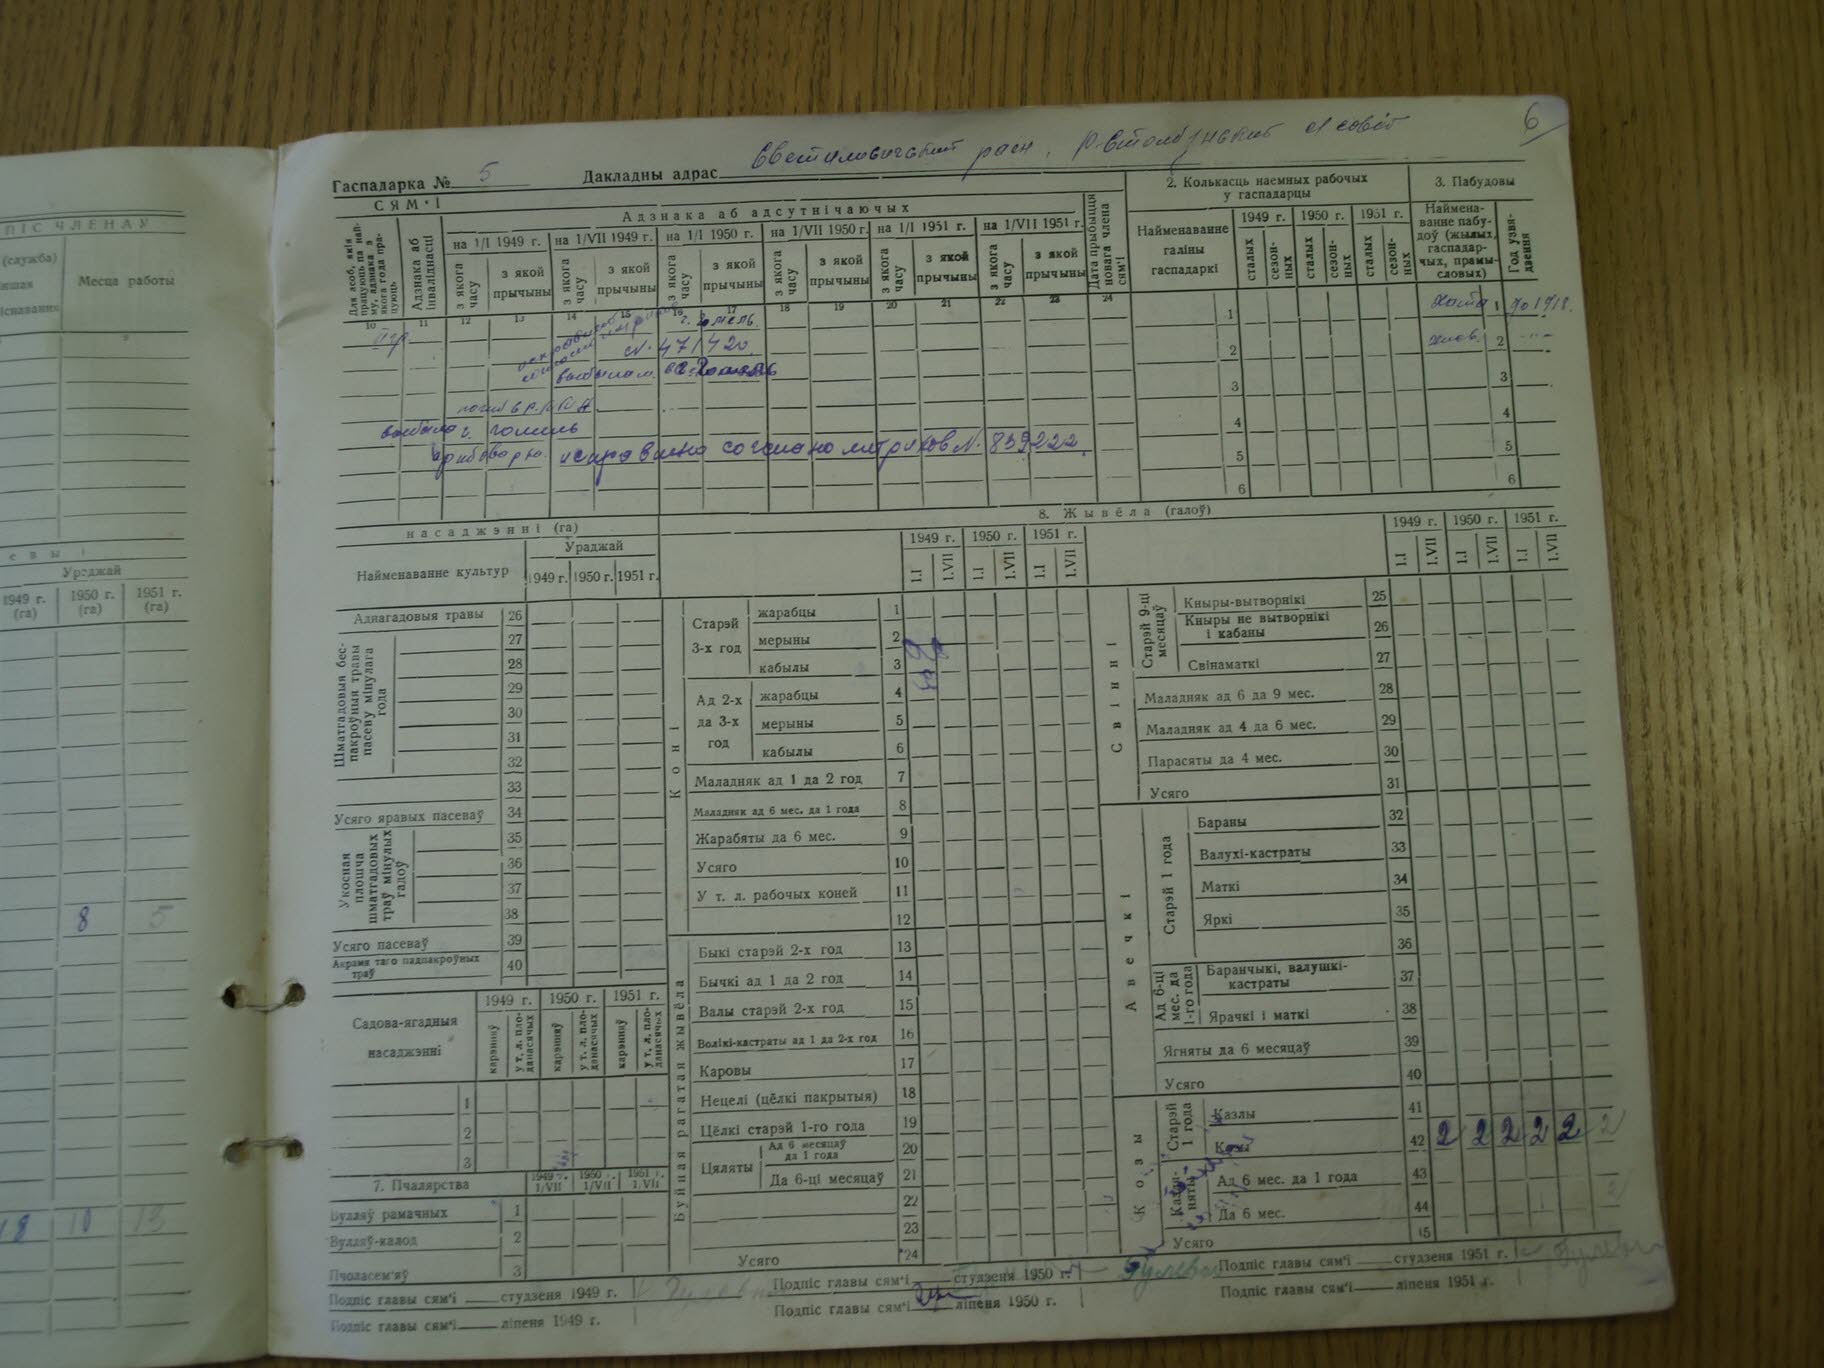 ПІС ЧЛЕНАЎ
(служба)
Месца работы
9
Ураджай
1949 г. (га) 1950 г. (га) 1951 г. (га)
8 5
18 10 13
6
Гаспадарка № 5 Дакладны адрас
СЯМ'І
Адзнака аб адсутнічаючых
Для асоб, якія працуюць па найму, адзнака з якога года працуюць
Адзнака аб інваліднасці
на 1/I 1949 г. на 1/VII 1949 г. на 1/I 1950 г. на 1/VII 1950 г. на 1/I 1951 г. на 1/VII 1951 г.
з якога часу з якой прычыны з якога часу з якой прычыны з якога часу з якой прычыны з якога часу з якой прычыны з якога часу з якой прычыны з якога часу з якой прычыны
Дата прыбыцця новага члена сям'і
10 11 12 13 14 15 16 17 18 19 20 21 22 23 24
г. Гомель.
№ 471420.
г. Гомель
№ 859222.
2. Колькасць наемных рабочых у гаспадарцы
Найменаванне галіны гаспадаркі
1949 г. 1950 г. 1951 г.
сталых сезонных сталых сезонных сталых сезонных
1
2
3
4
5
6
3. Пабудовы
Найменаванне пабудоў (жылых, гаспадарчых, прамысловых)
Год узвядзення
Хата 1 до 1918.
хлев. 2
3
4
5
6
насаджэнні (га)
Найменаванне культур
Ураджай
1949 г. 1950 г. 1951 г.
Аднагадовыя травы 26
Шматгадовыя беспакроўныя травы пасеву мінулага года
27
28
29
30
31
32
33
Усяго яравых пасеваў 34
Укосная плошча шматгадовых траў мінулых гадоў
35
36
37
38
Усяго пасеваў 39
Акрамя таго падпакроўных траў 40
Садова-ягадныя насаджэнні
1949 г. 1950 г. 1951 г.
карэнняў у т. л. пладанасячых карэнняў у т. л. пладанасячых карэнняў у т. л. пладанасячых
1
2
3
7. Пчалярства
1949 г. 1/VII 1950 г. 1/VII 1951 г. 1/VII
Вулляў рамачных 1
Вулляў-калод 2
Пчоласем'яў 3
8. Жывёла (галоў)
1949 г. 1950 г. 1951 г.
1.I 1.VII 1.I 1.VII 1.I 1.VII
Коні
Старэй 3-х год
жарабцы 1
мерыны 2
кабылы 3
Ад 2-х да 3-х год
жарабцы 4
мерыны 5
кабылы 6
Маладняк ад 1 да 2 год 7
Маладняк ад 6 мес. да 1 года 8
Жарабяты да 6 мес. 9
Усяго 10
У т. л. рабочых коней 11
12
Буйная рагатая жывёла
Быкі старэй 2-х год 13
Бычкі ад 1 да 2 год 14
Валы старэй 2-х год 15
Волікі-кастраты ад 1 да 2-х год 16
Каровы 17
Нецелі (цёлкі пакрытыя) 18
Цёлкі старэй 1-го года 19
Цяляты
Ад 6 месяцаў да 1 года 20
Да 6-ці месяцаў 21
22
23
Усяго 24
1949 г. 1950 г. 1951 г.
1.I 1.VII 1.I 1.VII 1.I 1.VII
Свінні
Старэй 9-ці месяцаў
Кныры-вытворнікі 25
Кныры не вытворнікі і кабаны 26
Свінаматкі 27
Маладняк ад 6 да 9 мес. 28
Маладняк ад 4 да 6 мес. 29
Парасяты да 4 мес. 30
Усяго 31
Авечкі
Старэй 1 года
Бараны 32
Валухі-кастраты 33
Маткі 34
Яркі 35
36
Ад 6-ці мес. да 1-го года
Баранчыкі, валушкі-кастраты 37
Ярачкі і маткі 38
Ягняты да 6 месяцаў 39
Усяго 40
Козы
Старэй 1 года
Казлы 41
Козы 42 2 2 2 2 2 2
Казляняты
Ад 6 мес. да 1 года 43
Да 6 мес. 44
Усяго 45
Подпіс главы сям'і студзеня 1949 г.
Подпіс главы сям'і ліпеня 1949 г.
Подпіс главы сям'і студзеня 1950 г.
Подпіс главы сям'і ліпеня 1950 г.
Подпіс главы сям'і студзеня 1951 г.
Подпіс главы сям'і ліпеня 1951 г.